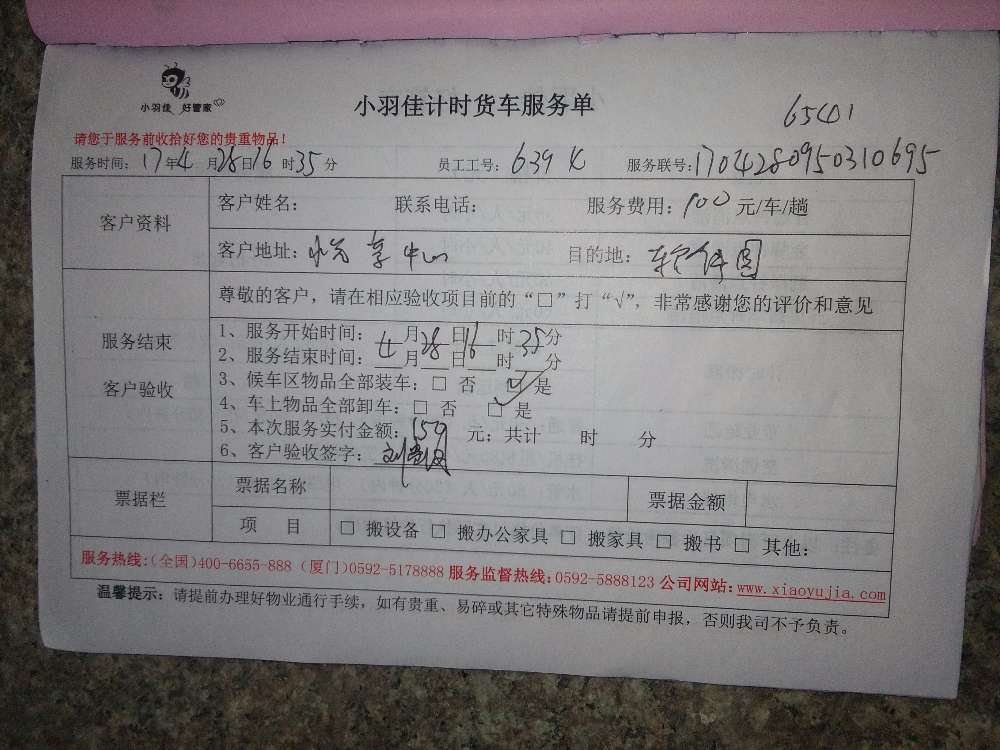 小羽佳 好管家
小羽佳计时货车服务单
65401
请您于服务前收拾好您的贵重物品！
服务时间：17年4月28日16时35分 员工工号：639 服务联号：1704280950310695
客户资料
客户姓名： 联系电话： 服务费用：900元/车/趟
客户地址：悦享中心 目的地：软件园
服务结束
客户验收
尊敬的客户，请在相应验收项目前的“□”打“√”，非常感谢您的评价和意见
1、服务开始时间：4月28日16时35分
2、服务结束时间：___月___日___时___分
3、候车区物品全部装车：□ 否 □ 是
4、车上物品全部卸车：□ 否 □ 是
5、本次服务实付金额：150 元；共计 时 分
6、客户验收签字：
票据栏
票据名称 票据金额
项 目 □ 搬设备 □ 搬办公家具 □ 搬家具 □ 搬书 □ 其他：
服务热线：（全国）400-6655-888（厦门）0592-5178888 服务监督热线：0592-5888123 公司网站：www.xiaoyujia.com
温馨提示：请提前办理好物业通行手续，如有贵重、易碎或其它特殊物品请提前申报，否则我司不予负责。